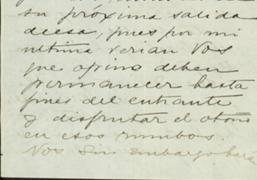 su próxima salida
deesa, pues por mi
ultima verian Vos
que opino deben
permanecer hasta
fines del entrante
y disfrutar el otoño
en esos rumbos.
Vos sin embargo